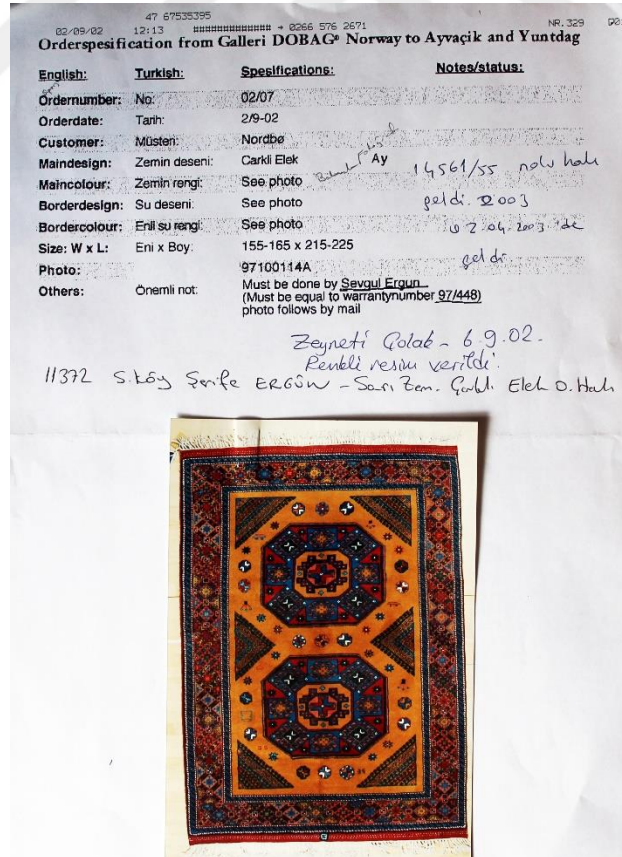 47 67535395
02/09/02 12:13 ############# → 0266 576 2671 NR.329
Orderspesification from Galleri DOBAG® Norway to Ayvaçik and Yuntdag
English: Turkish: Spesifications: Notes/status:
Ordernumber: No: 02/07
Orderdate: Tarih: 2/9-02
Customer: Müsteri: Nordbø
Maindesign: Zemin deseni: Carkli Elek Ay
14561/55 nolu halı
Maincolour: Zemin rengi: See photo
geldi. 2003
Borderdesign: Su deseni: See photo
Bordercolour: Enli su rengi: See photo
02.04.2003 'de
Size: W x L: Eni x Boy: 155-165 x 215-225
geldi.
Photo: 97100114A
Others: Önemli not: Must be done by Sevgul Ergun
(Must be equal to warrantynumber 97/448)
photo follows by mail
Zeyneti Çolak - 6.9.02.
Renkli resim verildi.
11372 S.köy Şerife ERGÜN - Sarı Zem. Çarklı Elek O. Halı